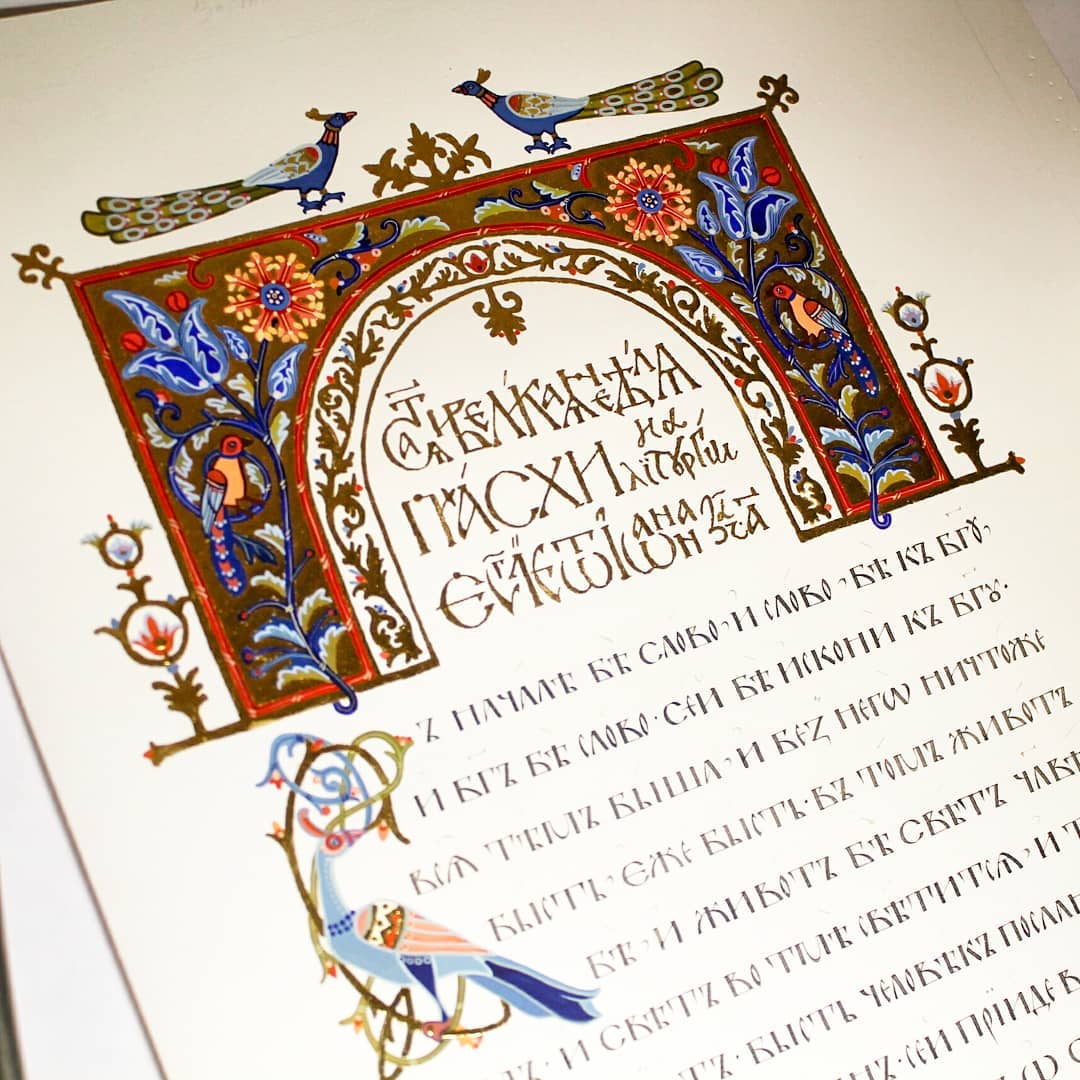 ПАСХИ на літꙋргїи
еѵⷢ҇лїе ѿ іѡанна
ъ началѣ бѣ слово, и слово, бѣ къ бгꙋ,
и бгъ бѣ слово · сеи бѣ искони къ бгꙋ.
всѧ тѣмъ быша, и беz него ничтоже
бысть, еже бысть · въ томъ животъ
бѣ, и животъ бѣ свѣтъ члвѣ
и свѣтъ во тмѣ свѣтитсѧ, и т
тъ · бысть человѣкъ послан
нъ · сей прїиде в